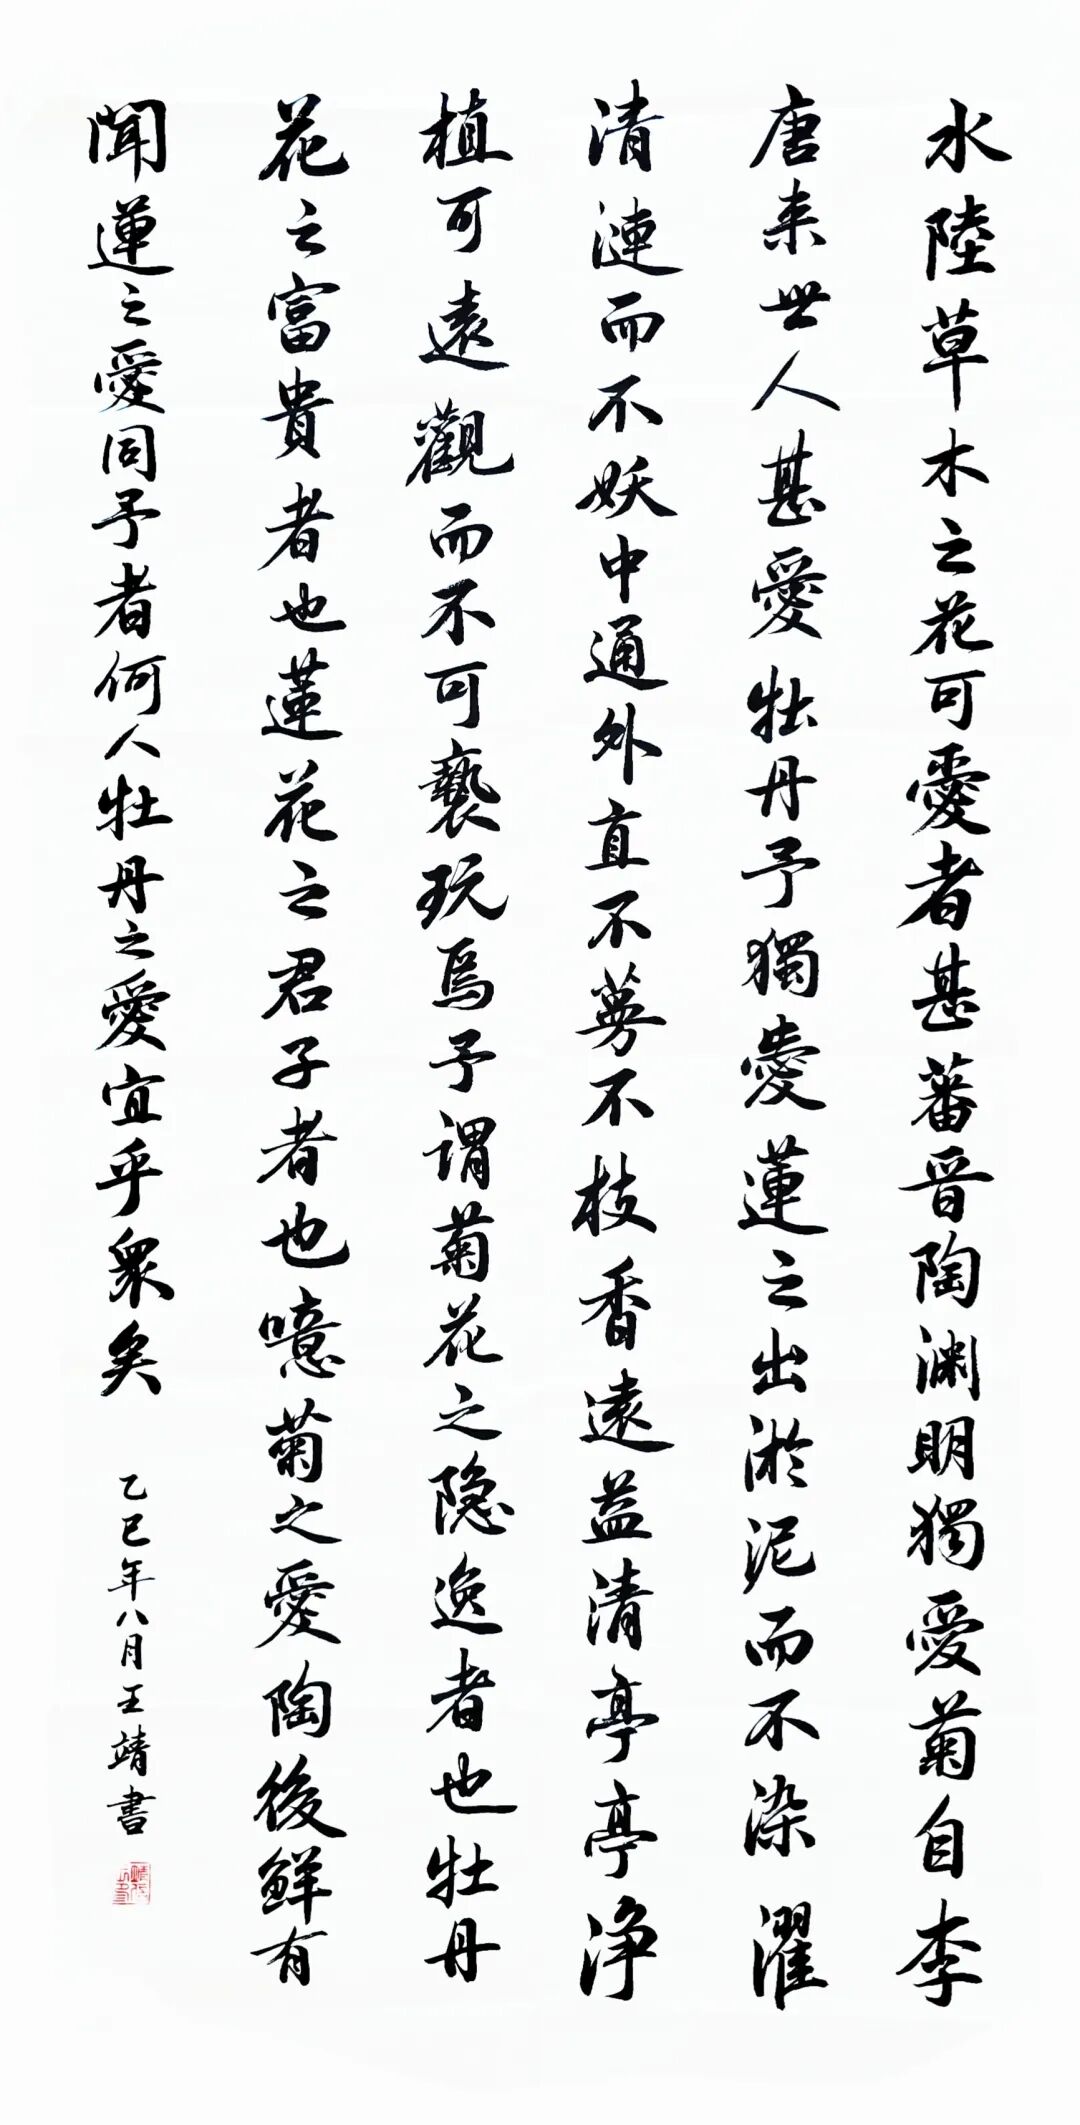 水陸草木之花可愛者甚蕃晋陶渊明獨愛菊自李
唐来世人甚愛牡丹予獨愛蓮之出淤泥而不染濯
清漣而不妖中通外直不蔓不枝香遠益清亭亭净
植可遠觀而不可褻玩焉予谓菊花之隐逸者也牡丹
花之富貴者也蓮花之君子者也噫菊之愛陶後鮮有
聞蓮之愛同予者何人牡丹之愛宜乎衆矣 乙巳年八月王靖書